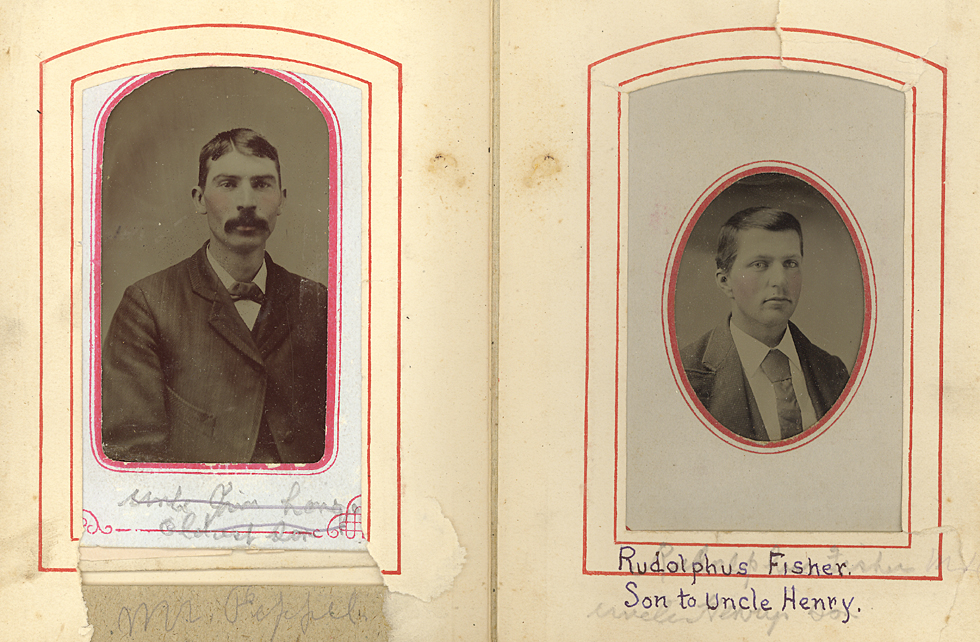 Uncle Jim Long
Oldest son
Mr Peppel
Rudolphus Fisher.
Son to Uncle Henry.